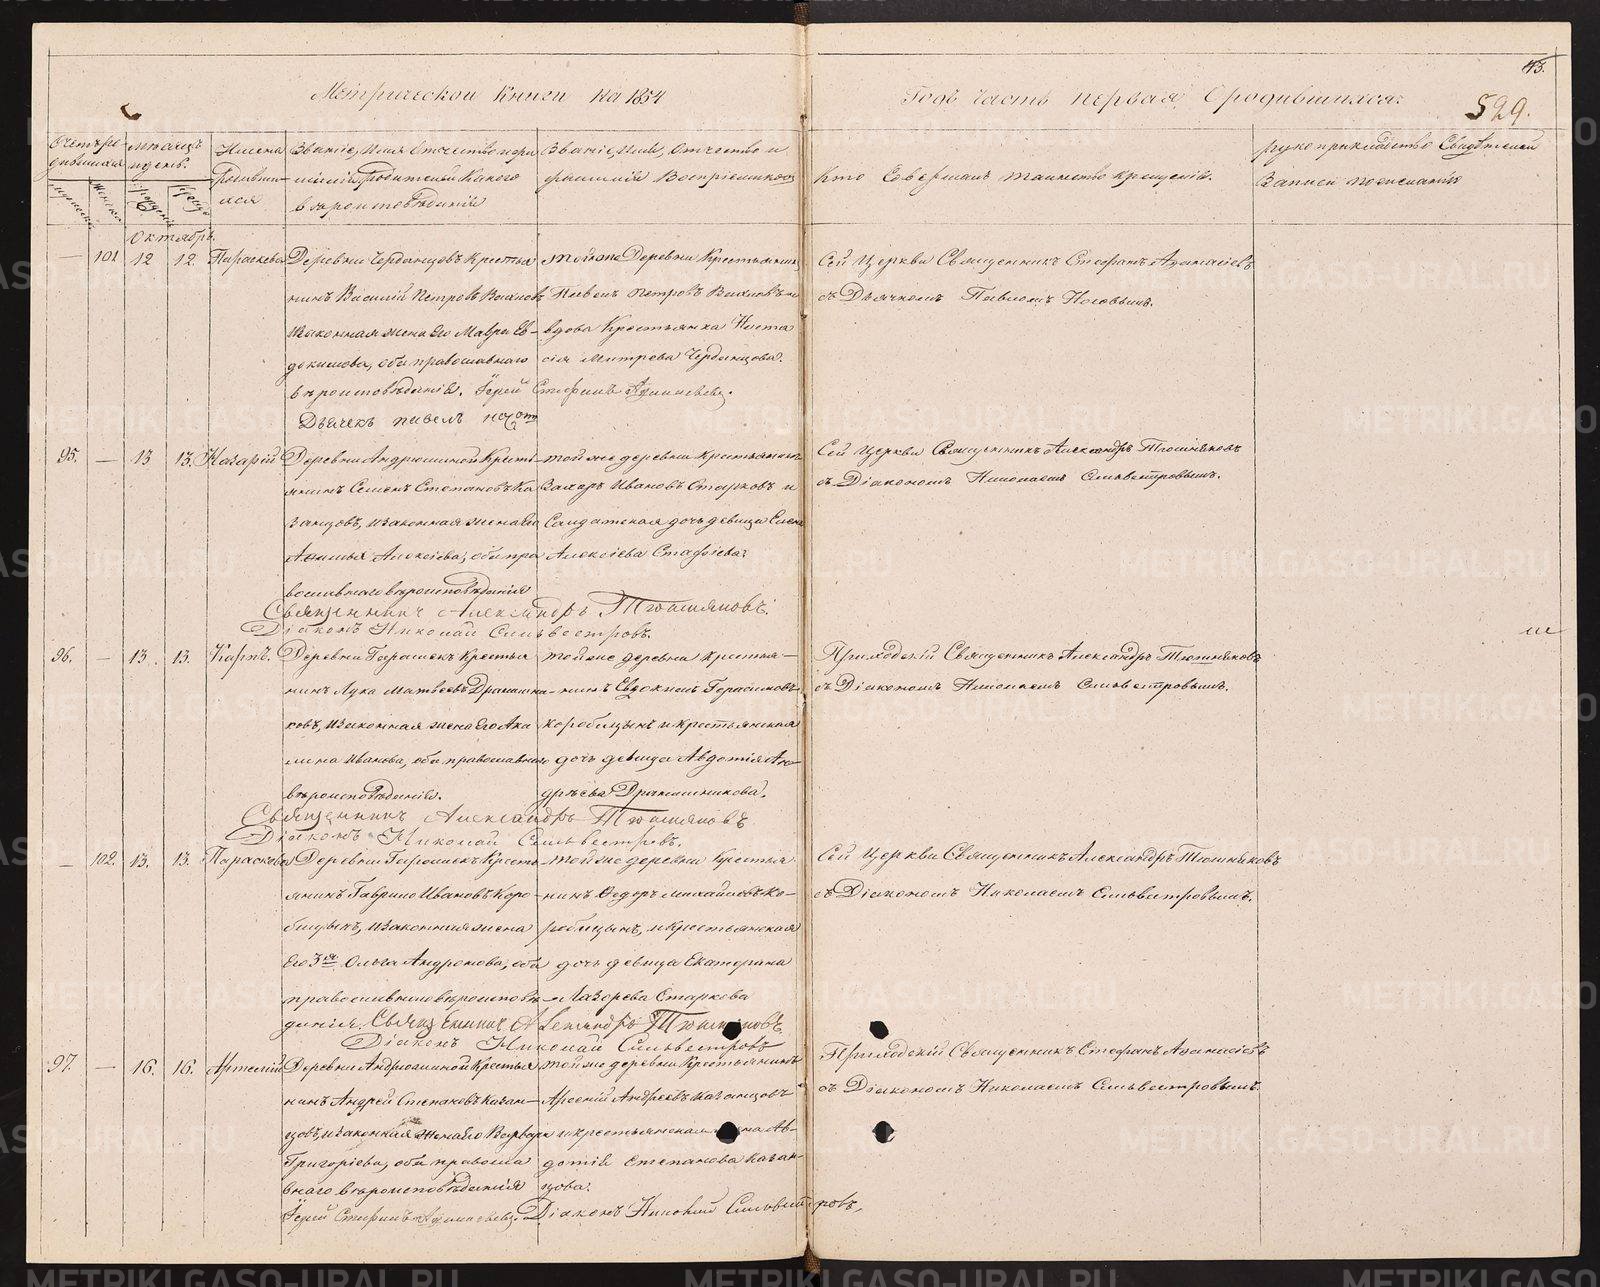 Метрической Книги на 1854
Годъ часть первая О родившихся.
43.
529.
Счетъ ро-
дившихся
Мѣсяцъ
и день.
Имена
Родивши-
хся
Званіе, Имя Отчество и фа-
милія Родителей Какого
вѣроисповѣданія
Званіе, Имя, Отчество и
фамилія Воспріемниковъ
Кто Совершалъ таинство крещенія.
рукоприкладство Свидѣтелей
Записи по желанію
Октябрь.
— 101 12 12. Параскева
Деревни Чердынцовъ Крестья
нинъ Василій Петровъ Вахловъ
изаконная жена его Мавра Ев-
докимова, оба православнаго
вѣроисповѣданія. Іерей Стефанъ Афанасьевъ.
Дьячекъ павелъ
Тойже Деревни Крестьянинъ
Павелъ Петровъ Вахловъ и
вдова Крестьянка Наста
сія Митрева Чердынцова.
Сей Церкви Священникъ Стефанъ Афанасіевъ
съ Дьячкомъ Павломъ
95. — 13 13. Назарій
Деревни Андрюшиной Кресть-
янинъ Семенъ Степановъ Ка
занцовъ, изаконная жена его
Афимья Алексіева, оба пра
вославнаго вѣроисповѣданія
Тойже деревни Крестьянинъ
Захаръ Ивановъ Старковъ и
Солдатская дочь девица Елена
Алексіева Стафіева.
Священникъ Александръ Тюшняковъ.
Діаконъ Николай Сильвестровъ.
Сей Церкви Священникъ Александръ Тюшняковъ
съ Діакономъ Николаемъ Сильвестровымъ.
96. — 13. 13. Карпъ.
Деревни Горашекъ Крестья
нинъ Лука Матвеевъ Драчашни-
ковъ, изаконная жена его Аку
лина Иванова, оба православнаго
вѣроисповѣданія.
Тойже деревни Крестья-
нинъ Евдокимъ Герасимовъ
Коробицынъ и крестьянская
дочь девица Авдотія Ан-
дрѣева Драчашникова.
Священникъ Александръ Тюшняковъ
Діаконъ Николай Сильвестровъ.
Приходскій Священникъ Александръ Тюшняковъ
съ Діакономъ Николаемъ Сильвестровымъ.
— 102. 13. 13. Параскева
Деревни Горошекъ Кресть
янинъ Гаврило Ивановъ Коро-
бицынъ, изаконная жена
его 3я Ольга Андронова, оба
православнаго вѣроисповѣ-
данія. Священникъ Александръ Тюшняковъ
Діаконъ Николай Сильвестровъ
Тойже деревни Крестья
нинъ Федоръ Михайловъ Ко-
робицынъ, и крестьянская
дочь девица Екатерина
Лазорева Старкова
Сей Церкви Священникъ Александръ Тюшняковъ
съ Діакономъ Николаемъ Сильвестровымъ.
97. — 16. 16. Артемій
Деревни Андрюшиной Крестья
нинъ Андрей Степановъ Казан-
цовъ, изаконная жена его Варвара
Григоріева, оба правосла
внаго вѣроисповѣданія
Тойже деревни Крестьянинъ
Арсеній Андреевъ Казанцовъ
и крестьянская жена Ав-
дотія Степанова Казан-
цова.
Іерей Стефанъ Афанасьевъ. Діаконъ Николай Сильвестровъ.
Приходскій Священникъ Стефанъ Афанасіевъ
съ Діакономъ Николаемъ Сильвестровымъ.
METRIKI.GASO-URAL.RU